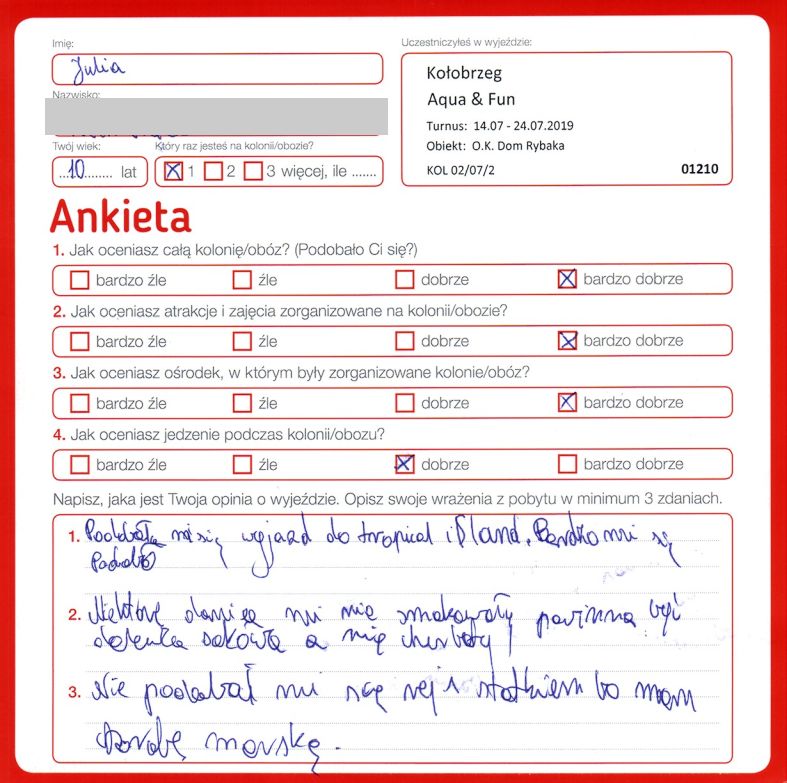 Imię:
Julia
Nazwisko:
Twój wiek:
10 lat
Który raz jesteś na kolonii/obozie?
1 2 3 więcej, ile .......
Uczestniczyłeś w wyjeździe:
Kołobrzeg
Aqua & Fun
Turnus: 14.07 - 24.07.2019
Obiekt: O.K. Dom Rybaka
KOL 02/07/2 01210
Ankieta
1. Jak oceniasz całą kolonię/obóz? (Podobało Ci się?)
bardzo źle źle dobrze bardzo dobrze
2. Jak oceniasz atrakcje i zajęcia zorganizowane na kolonii/obozie?
bardzo źle źle dobrze bardzo dobrze
3. Jak oceniasz ośrodek, w którym były zorganizowane kolonie/obóz?
bardzo źle źle dobrze bardzo dobrze
4. Jak oceniasz jedzenie podczas kolonii/obozu?
bardzo źle źle dobrze bardzo dobrze
Napisz, jaka jest Twoja opinia o wyjeździe. Opisz swoje wrażenia z pobytu w minimum 3 zdaniach.
1. mi się wyjazd do tropical iSland. Bardzo mi się
2. Niektóre mi nie smakowały powinna być
a nie
3. Nie podobał mi się rejs statkiem bo mam
chorobę morską.